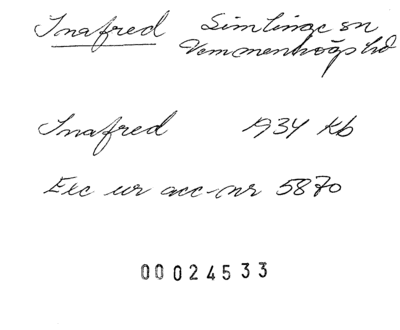 Inafred Simlinge sn
Vemmenhögs hd
Inafred 1934 Kb
Exc ur acc-nr 5870
00024533